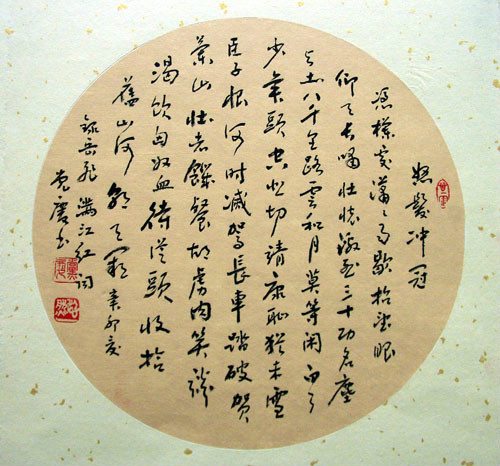 怒髮冲冠
憑欄處瀟々雨歇抬望眼
仰天長嘯壯懷激烈三十功名塵
与土八千里路雲和月莫等闲白了
少年頭空悲切靖康恥猶未雪
臣子恨何时滅駕長車踏破賀
蘭山壮志饑餐胡虜肉笑談
渴飲匈奴血待從頭收拾
舊山河朝天闕 辛卯夏
錄岳飛滿江红词
书